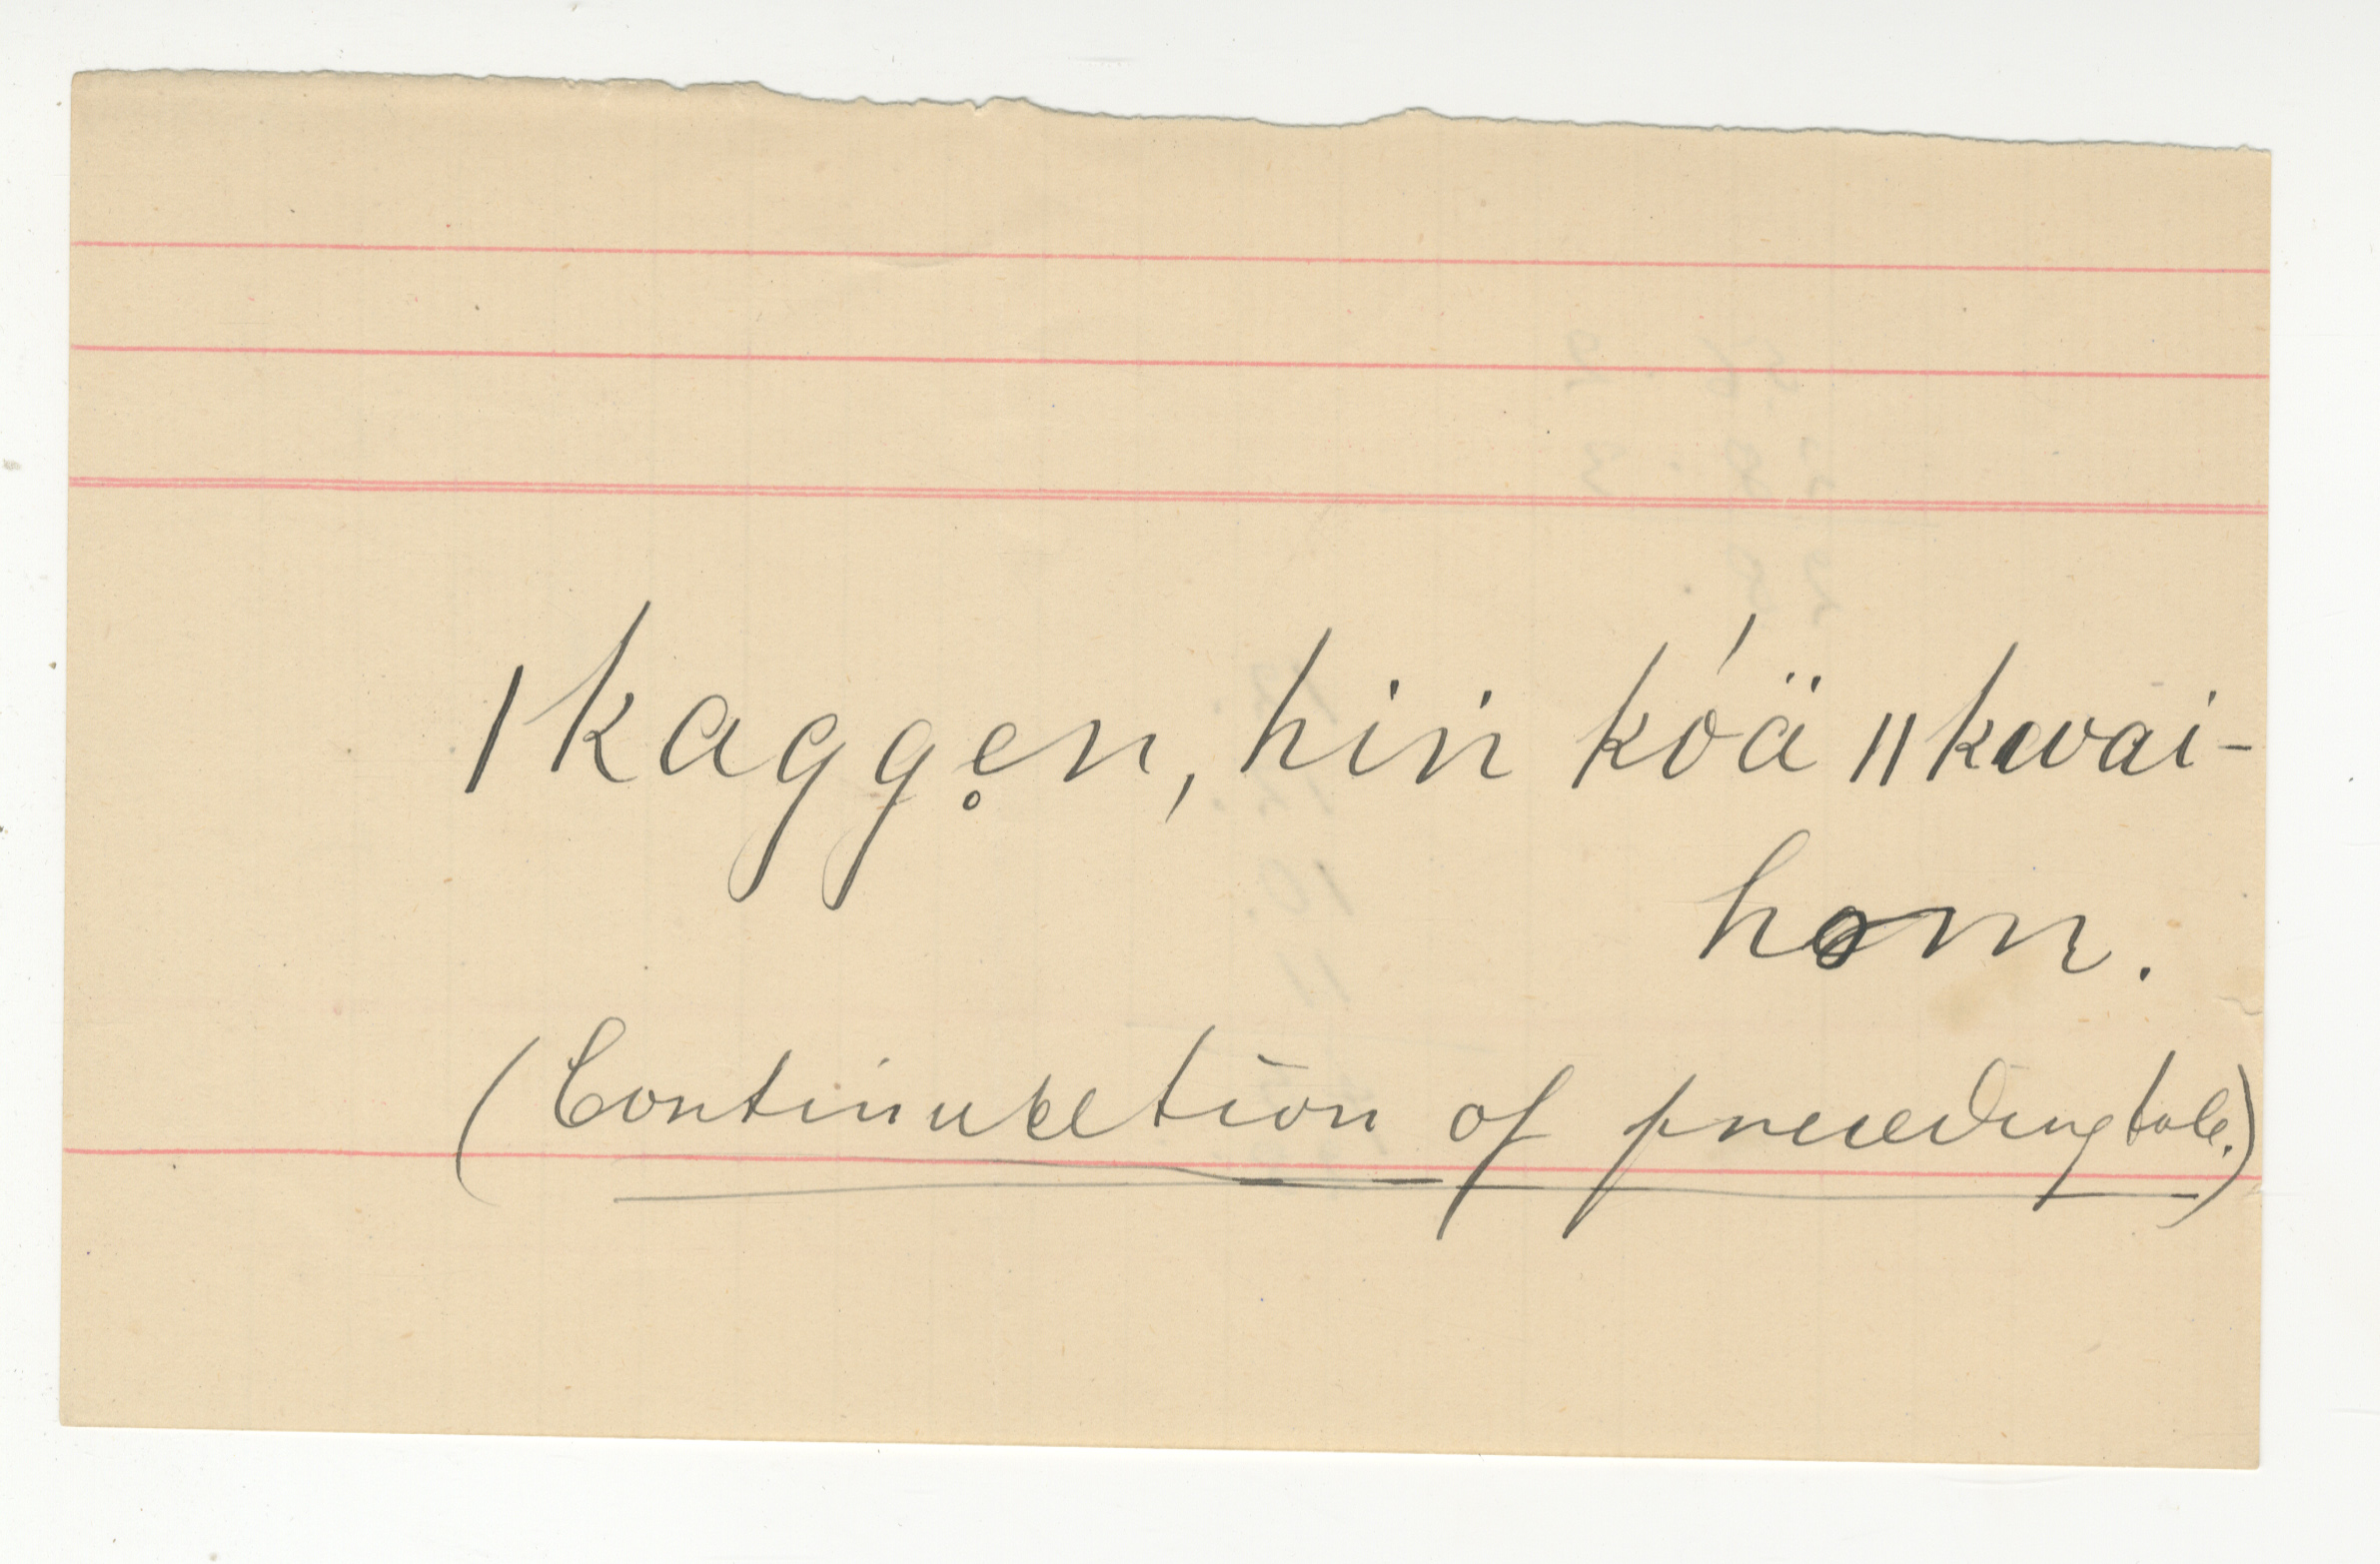 |kaggen̥, hiṅ kóä ||kwai-
hom.
(Continuation of preceding tale.)